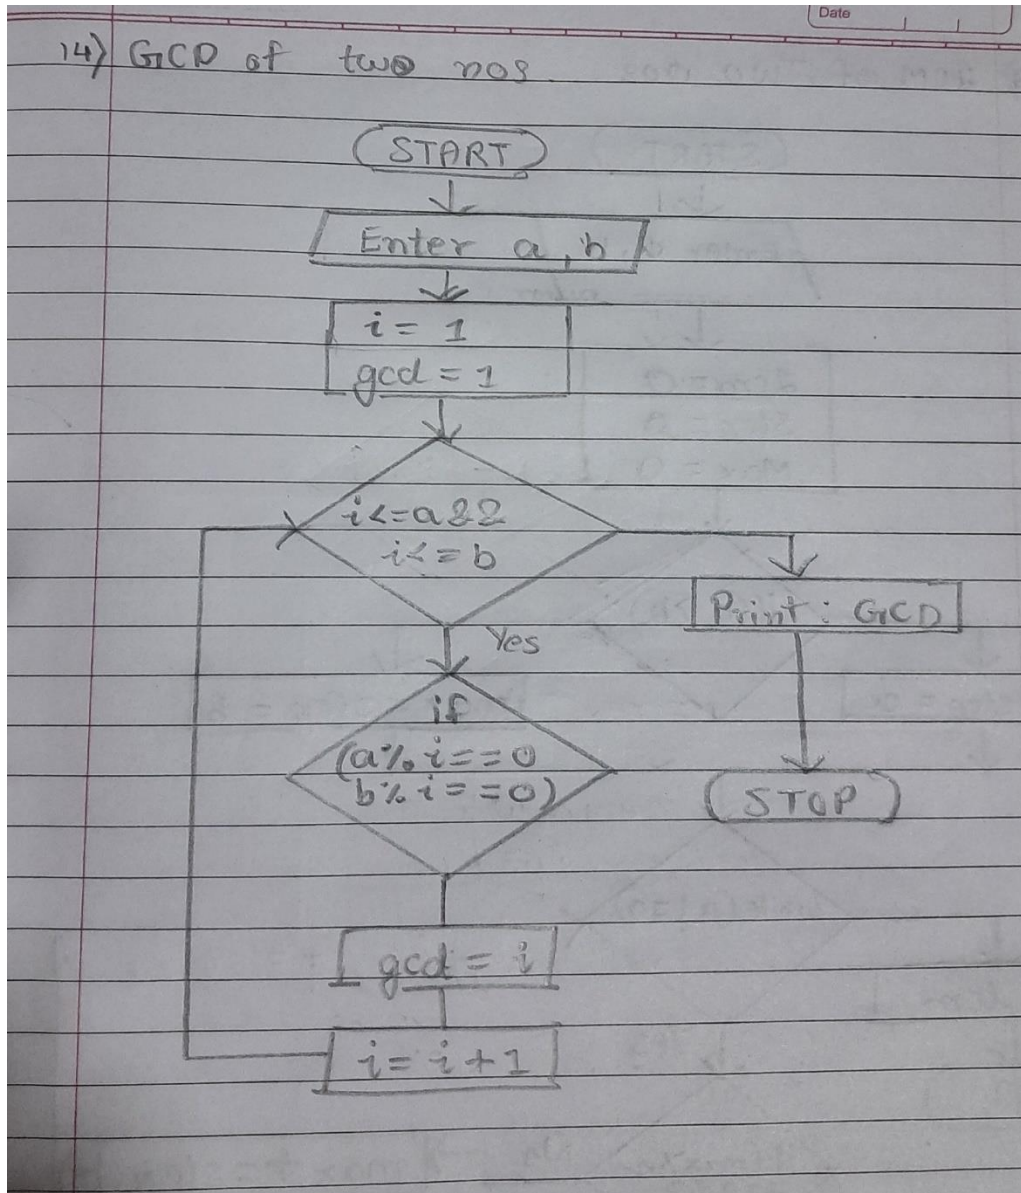 Date
14) GCD of two nos.
START
Enter a, b
i = 1
gcd = 1
i<=a &&
i<=b
Yes
Print: GCD
if
(a% i==0
b% i==0)
STOP
gcd = i
i= i+1